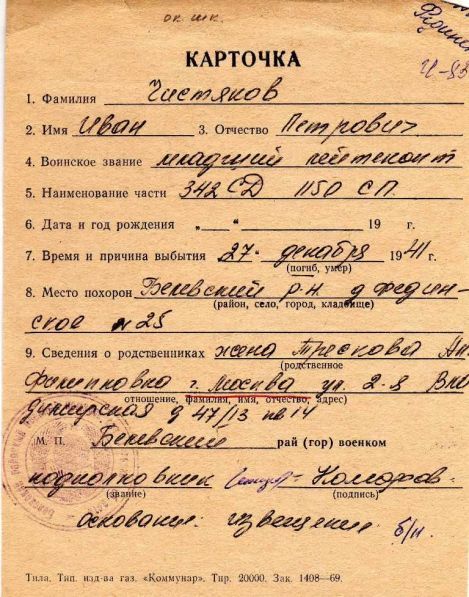 ок. шк.
И-83
КАРТОЧКА
1. Фамилия Чистяков
2. Имя Иван 3. Отчество Петрович
4. Воинское звание младший лейтенант
5. Наименование части 342 СД 1150 С.П.
6. Дата и год рождения „ “ 19 г.
7. Время и причина выбытия 27 декабря 1941 г.
(погиб, умер)
8. Место похорон Белевский р-н д Федин-
(район, село, город, кладбище)
ское № 25
9. Сведения о родственниках жена Трескова Ан.
(родственное
Филипповна г. Москва ул. 2-я Вла
отношение, фамилия, имя, отчество, адрес)
димирская д 47/13 кв 14
М. П. Белевский рай (гор) военком
подполковник Комаров
(звание) (подпись)
основание: извещение б/н.
Тила. Тип. изд-ва газ. «Коммунар». Тир. 20000. Зак. 1408—69.